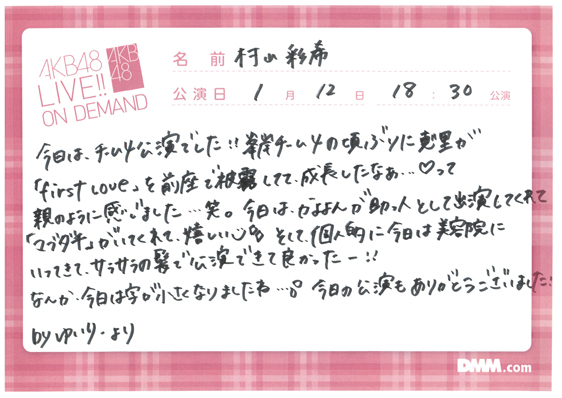 AKB48
LIVE!!
ON DEMAND
AKB
48
名前 村山彩希
公演日 1月12日 18:30公演
今日は、チーム4公演でした!! 峯岸チーム4の頃ぶりに恵里が
「first Love」を前座で披露してて、成長したなぁ…♡って
親のように感じました…笑。今日は、かよよんが助っ人として出演してくれて
「マブダチ」がいてくれて、嬉しい そして、個人的に今日は美容院に
いってきて、サラサラの髪で公演できて良かったー!!
なんか、今日は字が小さくなりましたね…。 今日の公演もありがとうございました!!
by ゆいりーより
DMM.com